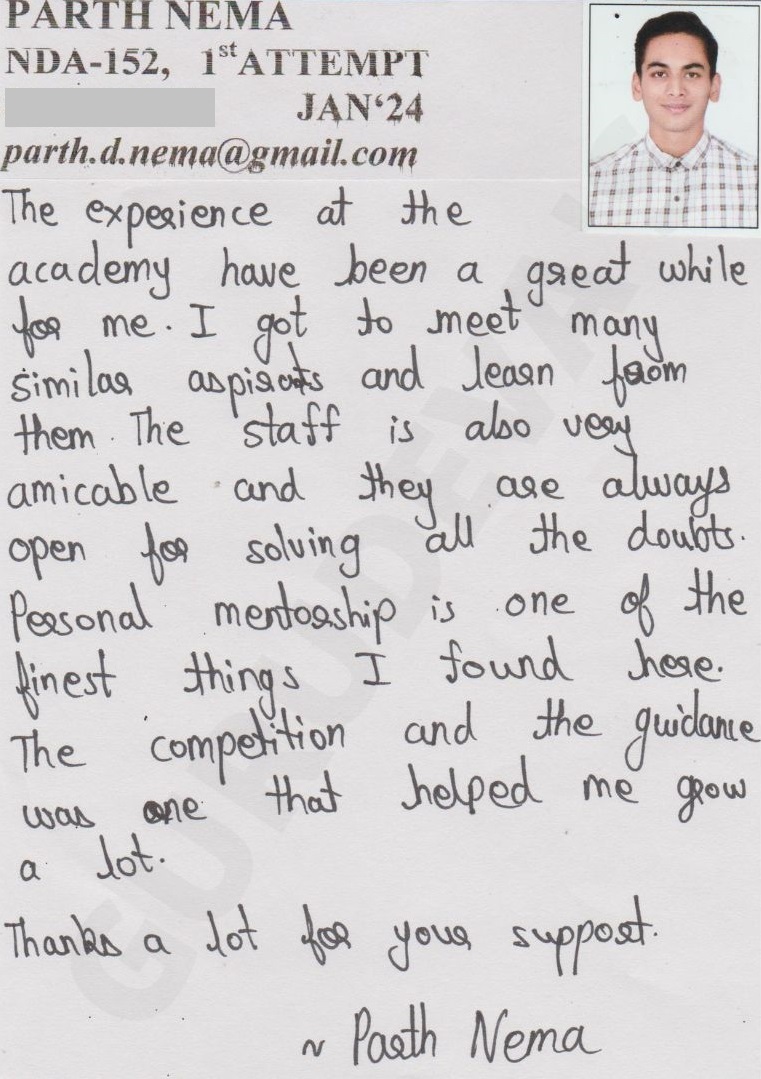 PARTH NEMA
NDA-152, 1st ATTEMPT
JAN‘24
parth.d.nema@gmail.com
The experience at the
academy have been a great while
for me. I got to meet many
similar aspirats and learn from
them. The staff is also very
amicable and they are always
open for solving all the doubts.
Personal mentorship is one of the
finest things I found here.
The competition and the guidance
was one that helped me grow
a lot.
Thanks a lot for your support.
~ Parth Nema
GURUDEVA